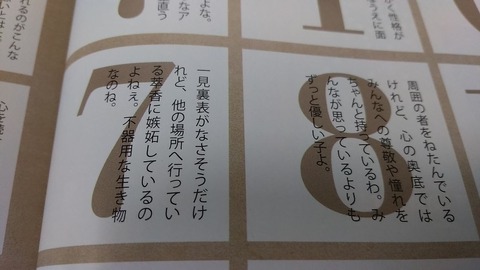 く性格が
うえに面
周囲の者をねたんでいる
けれど、心の奥底では
みんなへの尊敬や憧れを
ちゃんと持っているわ。み
んなが思っているよりも
ずっと優しい子よ。
8
よな。
なア
直う
一見裏表がなさそうだけ
れど、他の場所へ行ってい
る萃香に嫉妬しているの
よねぇ。不器用な生き物
なのね。
7
れるのがこんな